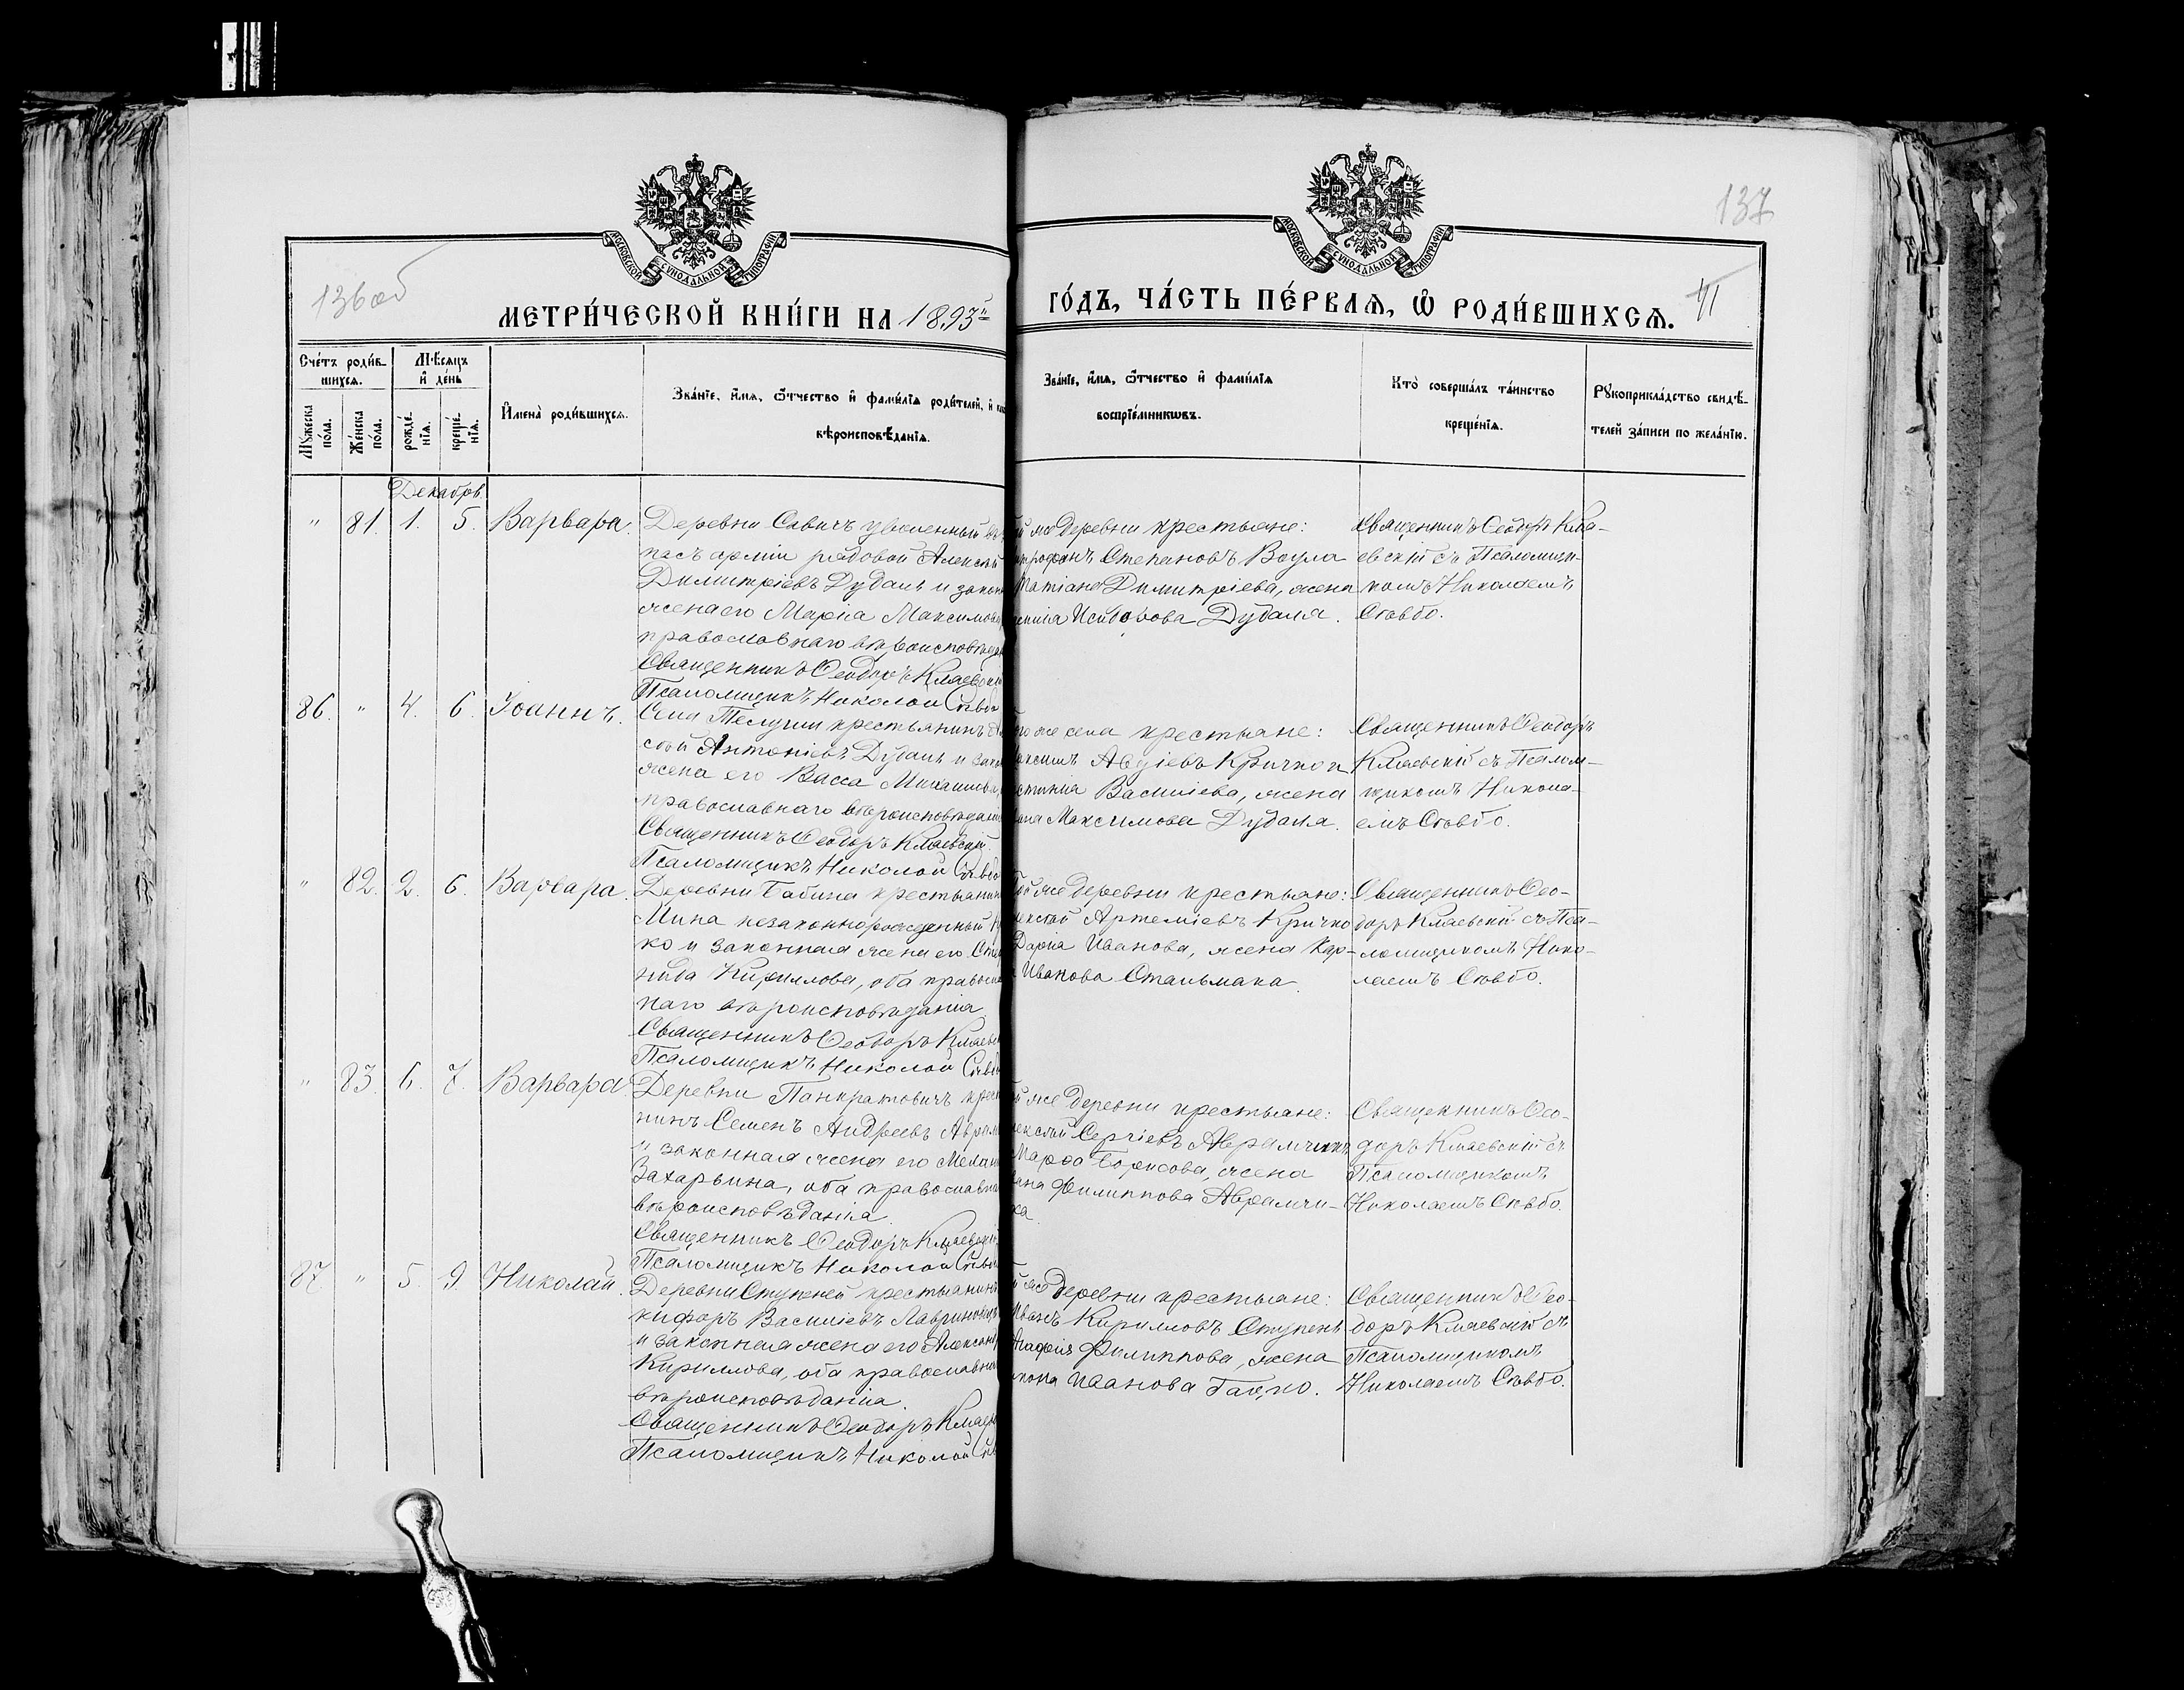 136 об
137
41
МОСКОВСКОЙ СѴНОДАЛЬНОЙ ТИПОГРАФІИ
МОСКОВСКОЙ СѴНОДАЛЬНОЙ ТИПОГРАФІИ
МЕТРИ́ЧЕСКОЙ КНИ́ГИ НА 1893й
ГО́ДЪ, ЧА́СТЬ ПЕ́РВАѦ, Ѡ҆ РОДИ́ВШИХСѦ.
Сче́тъ роди́в-
шихсѧ.
Мꙋ́жеска по́ла.
Же́нска по́ла.
Мѣ́сѧцъ
и҆ де́нь
рожде́нїѧ.
креще́нїѧ.
И҆мена̀ роди́вшихсѧ.
Зва́нїе, и҆́мѧ, ѻ҆́тчество и҆ фами́лїѧ роди́телей, и҆
вѣроисповѣ́данїѧ.
Зва́нїе, и҆́мѧ, ѻ҆́тчество и҆ фами́лїѧ
воспрїе́мникѡвъ.
Кто̀ соверша́лъ та́инство
креще́нїѧ.
Рꙋкоприкла́дство свидѣ́-
телей за́писи по жела́нїю.
Декабрь
" 81. 1. 5. Варвара.
Деревни Савичъ уволенный въ
пасъ арміи рядовой Алексѣй
Димитріевъ Дубаль и закон
жена его Марія Максимова
православнаго вѣроисповѣдан
Священникъ Ѳеодоръ Клаевскій
Псаломщикъ Николай Сѣвбо
й же деревни крестьяне:
трофанъ Степановъ Воула
Татіана Димитріева, жена
Исидорова Дубаля.
Священникъ Ѳеодоръ Кла-
евскій съ Псаломщи-
комъ Николаемъ
Сѣвбо.
86. " 4. 6. Іоаннъ.
Села Телуши крестьянинъ
сѣй Антоніевъ Дубаль и зако
жена его Васса Михаилова,
православнаго вѣроисповѣдані
Священникъ Ѳеодоръ Клаевскій.
Псаломщикъ Николай Сѣвбо
го же села крестьяне:
аксимъ Авдіевъ Кричко и
стинія Васильева, жена
Максимова Дубаля.
Священникъ Ѳеодоръ
Клаевскій съ Псалом-
щикомъ Никола-
емъ Сѣвбо.
" 82. 2. 6. Варвара.
Деревни Бабина крестьянин
Мина незаконнорожденный
ко и законная жена его Сте
нида Кириллова, оба правосла
наго вѣроисповѣданія.
Священникъ Ѳеодоръ Клаевск
Псаломщикъ Николай Сѣвбо
Той же деревни крестьяне:
лексѣй Артеміевъ Кричко
Дарія Иванова, жена Кар-
Иванова Стальмака.
Священникъ Ѳео-
доръ Клаевскій съ Пса-
ломщикомъ Нико-
лаемъ Сѣвбо.
" 83. 6. 7. Варвара
Деревни Панкратовичъ крест
нинъ Семенъ Андреевъ Аврам
и законная жена его Мелан
Захарьина, оба православна
вѣроисповѣданія.
Священникъ Ѳеодоръ Клаевскій
Псаломщикъ Николай Сѣвбо
й же деревни крестьяне:
лексѣй Сергіевъ Аврамчикъ
Марѳа Борисова, жена
ана Филиппова Аврамчи-
ка.
Священникъ Ѳео-
доръ Клаевскій съ
Псаломщикомъ
Николаемъ Сѣвбо.
87 " 5. 9. Николай.
Деревни Ступеней крестьянинъ
кифоръ Васильевъ Лавринови
и законная жена его Алексан
Кириллова, оба православна
вѣроисповѣданія.
Священникъ Ѳеодоръ Клаев
Псаломщикъ Николай Сѣв
й же деревни крестьяне:
Иванъ Кирилловъ Ступень
Агафія Филиппова, жена
Иванова Гацко.
Священникъ Ѳео-
доръ Клаевскій съ
Псаломщикомъ
Николаемъ Сѣвбо.